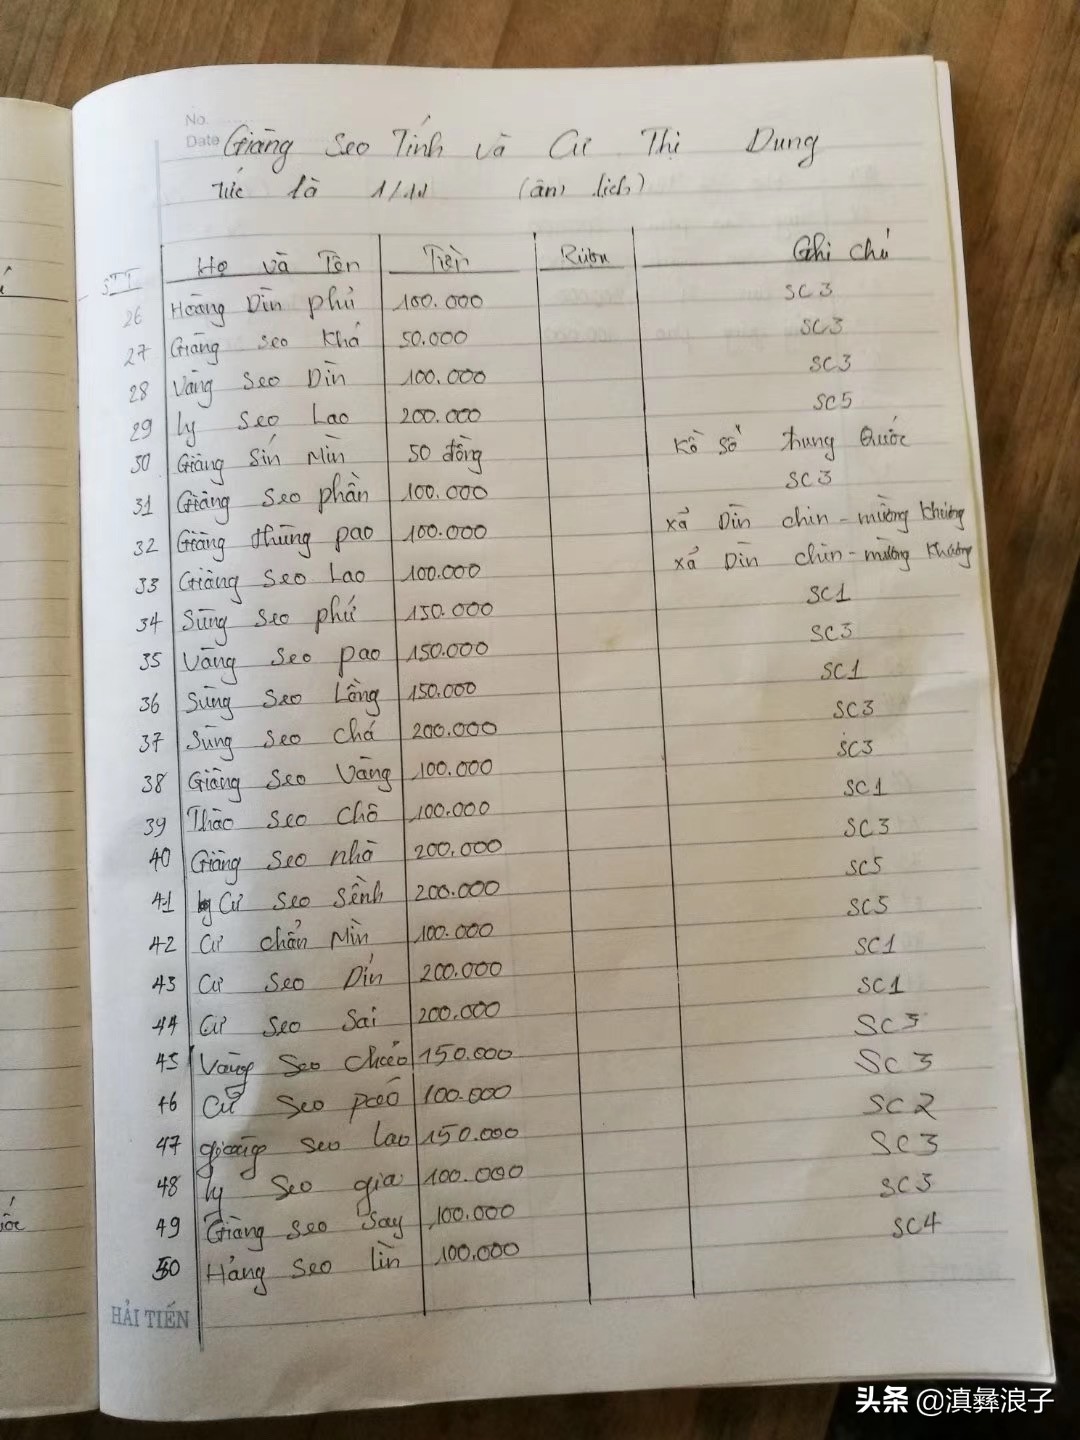 No.
Date Giàng Seo Tính và Cư Thị Dung
Tức là 1/11 (âm lịch)
STT Họ và Tên Tiền Rượu Ghi chú
26 Hoàng Dìn phủ 100.000 SC3
27 Giàng Seo Khá 50.000 SC3
28 Vàng Seo Dìn 100.000 SC3
29 Ly Seo Lao 200.000 SC5
30 Giàng Sín Mìn 50 đồng Kồ Sồ trung Quốc
31 Giàng Seo phần 100.000 SC3
32 Giàng thùng pao 100.000 xả Dìn chin - mường Khương
33 Giàng Seo Lao 100.000 xả Dìn chin - mường Khương
34 Sùng Seo phứ 150.000 SC1
35 Vàng Seo pao 150.000 SC3
36 Sùng Seo Lồng 150.000 SC1
37 Sùng Seo chá 200.000 SC3
38 Giàng Seo Vàng 100.000 SC3
39 Thào Seo Chô 100.000 SC1
40 Giàng Seo nhà 200.000 SC3
41 Cư Seo Sềnh 200.000 SC5
42 Cư chẩn Mìn 100.000 SC5
43 Cư Seo Dín 200.000 SC1
44 Cư Seo Sai 200.000 SC1
45 Vàng Seo 150.000 SC3
46 Cư Seo 100.000 SC3
47 giàng Seo lao 150.000 SC2
48 ly Seo gia 100.000 SC3
49 Giàng Seo Say 100.000 SC3
50 Hảng Seo lìn 100.000 SC4
HẢI TIẾN
头条 @滇彝浪子